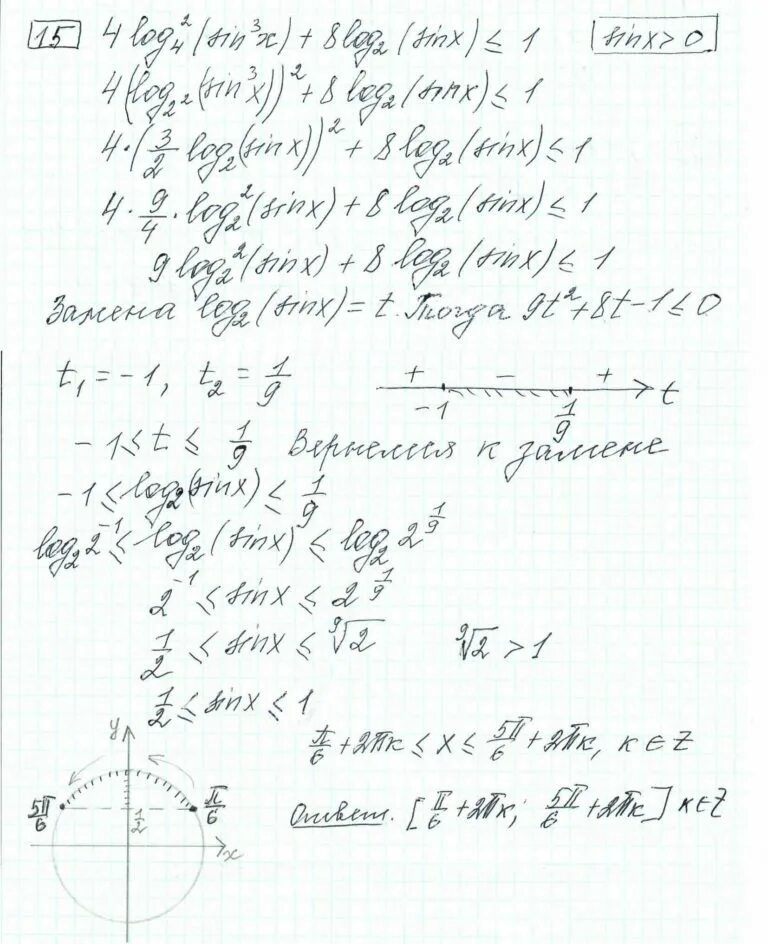 15 4 log₄²(sin³x) + 8 log₂(sinx) ≤ 1 sinx > 0
4(log₂²(sin³x))² + 8 log₂(sinx) ≤ 1
4·(3/2 log₂(sinx))² + 8 log₂(sinx) ≤ 1
4·9/4·log₂²(sinx) + 8 log₂(sinx) ≤ 1
9 log₂²(sinx) + 8 log₂(sinx) ≤ 1
Замена log₂(sinx) = t. Тогда 9t² + 8t - 1 ≤ 0
t₁ = -1, t₂ = 1/9
+ - + t
-1 1/9
-1 ≤ t ≤ 1/9 Вернемся к замене
-1 ≤ log₂(sinx) ≤ 1/9
log₂2⁻¹ ≤ log₂(sinx) ≤ log₂2^(1/9)
2⁻¹ ≤ sinx ≤ 2^(1/9)
1/2 ≤ sinx ≤ ⁹√2 ⁹√2 > 1
1/2 ≤ sinx ≤ 1
π/6 + 2πk ≤ x ≤ 5π/6 + 2πk, k ∈ Z
y
5π/6 1/2 π/6
x
Ответ. [π/6 + 2πk; 5π/6 + 2πk] k ∈ Z